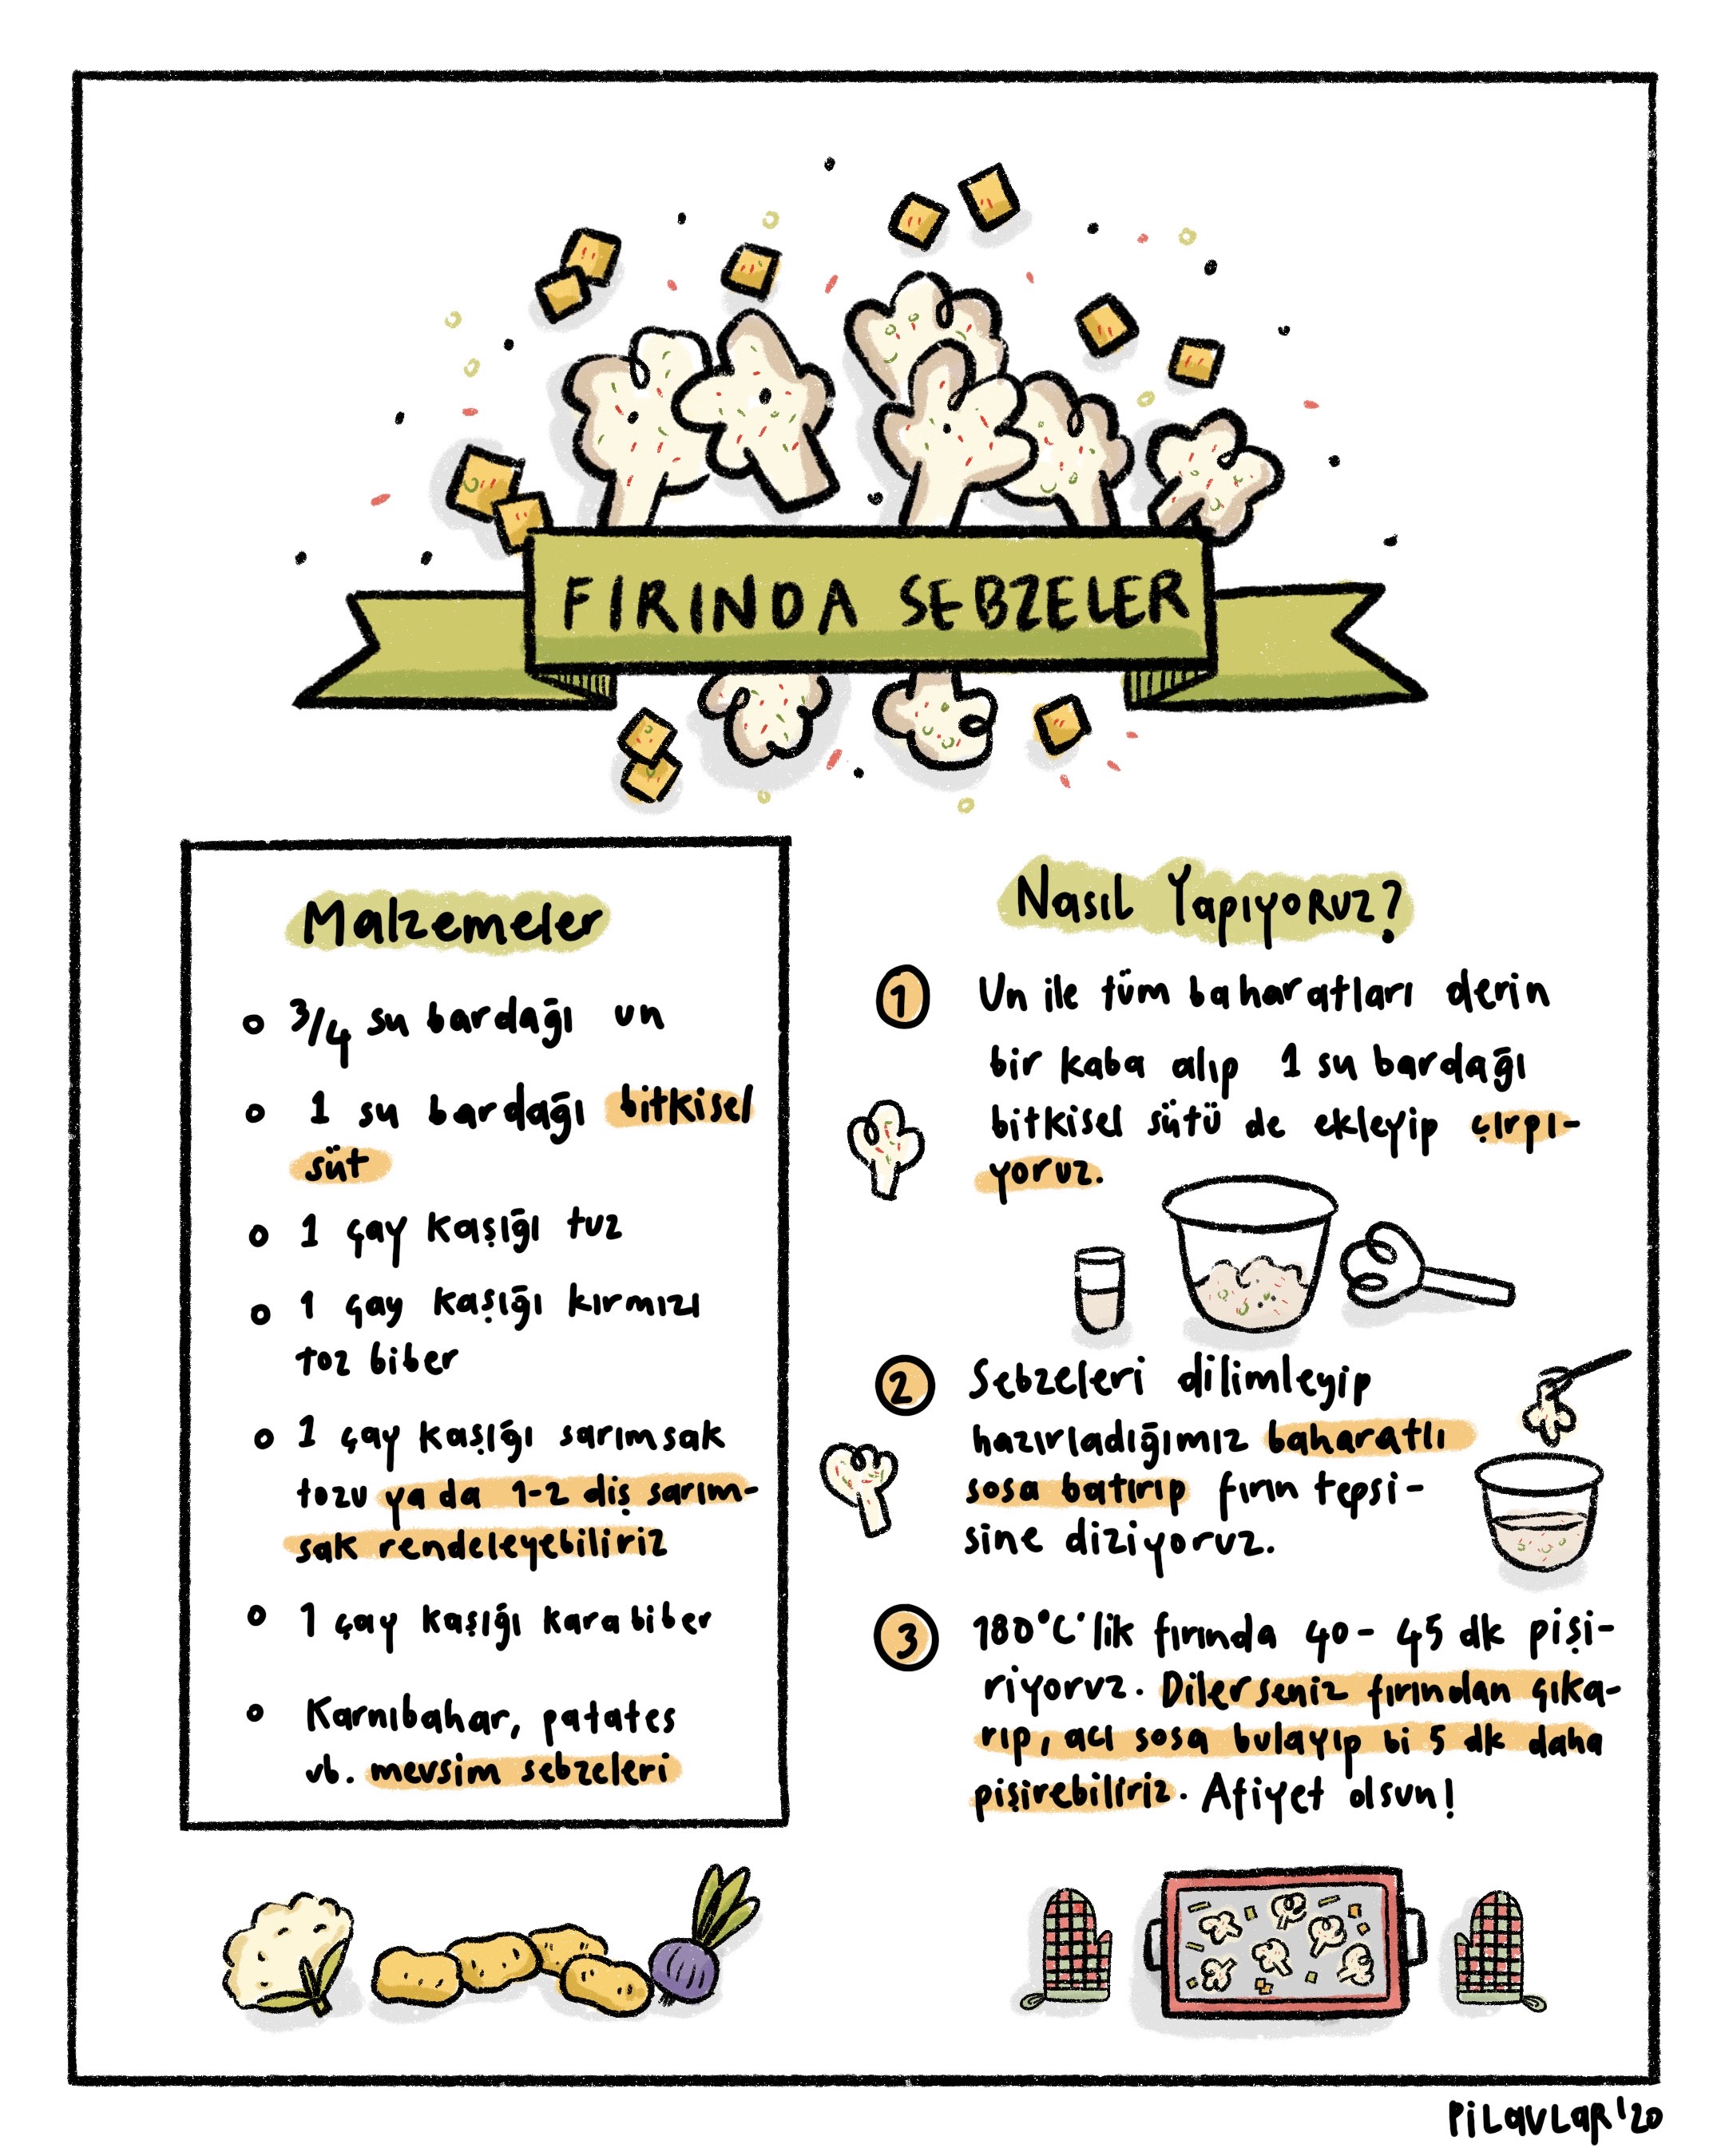 FIRINDA SEBZELER
Malzemeler
3/4 su bardağı un
1 su bardağı bitkisel
süt
1 çay kaşığı tuz
1 çay kaşığı kırmızı
toz biber
1 çay kaşığı sarımsak
tozu ya da 1-2 diş sarım-
sak rendeleyebiliriz
1 çay kaşığı karabiber
Karnıbahar, patates
vb. mevsim sebzeleri
Nasıl Yapıyoruz?
1 Un ile tüm baharatları derin
bir kaba alıp 1 su bardağı
bitkisel sütü de ekleyip çırpı-
yoruz.
2 Sebzeleri dilimleyip
hazırladığımız baharatlı
sosa batırıp fırın tepsi-
sine diziyoruz.
3 180°C'lik fırında 40-45 dk pişi-
riyoruz. Dilerseniz fırından çıka-
rıp, acı sosa bulayıp bi 5 dk daha
pişirebiliriz. Afiyet olsun!
PiLavLaR'20